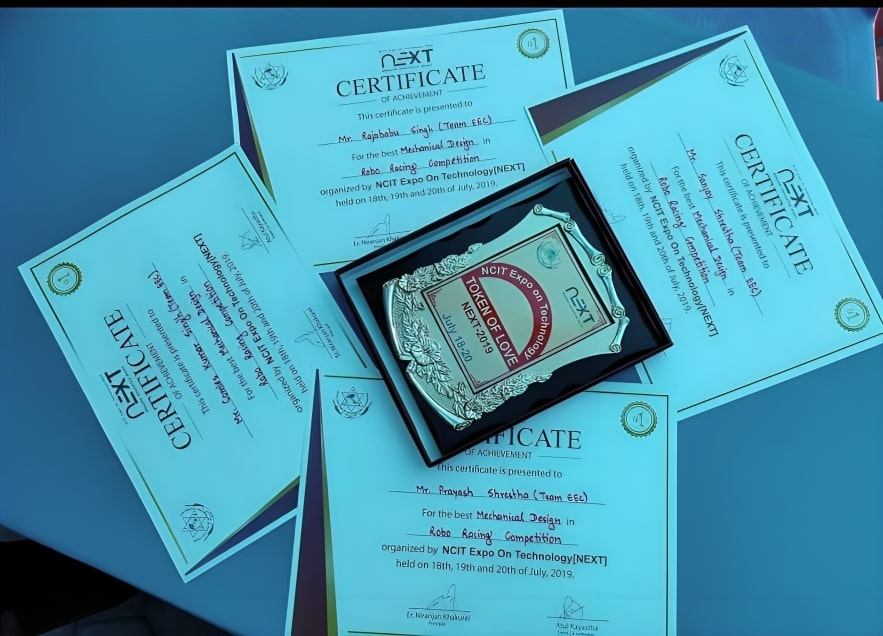 NEXT
CERTIFICATE
OF ACHIEVEMENT
This certificate is presented to
Mr. Rajababu Singh (Team EEC)
For the best Mechanical Design in
Robo Racing Competition
organized by NCIT Expo On Technology[NEXT]
held on 18th, 19th and 20th of July, 2019.
Er. Niranjan Khakurel
#1
NEXT
CERTIFICATE
OF ACHIEVEMENT
This certificate is presented to
Mr. Sanjay Shrestha (Team EEC)
For the best Mechanical Design in
Robo Racing Competition
organized by NCIT Expo On Technology[NEXT]
held on 18th, 19th and 20th of July, 2019.
#1
NEXT
CERTIFICATE
OF ACHIEVEMENT
This certificate is presented to
Kumar Singh (Team EEC)
For the best Mechanical Design in
Robo Racing Competition
organized by NCIT Expo On Technology[NEXT]
held on 18th, 19th and 20th of July, 2019.
Er. Niranjan Khakurel
#1
NEXT
NCIT Expo on Technology
TOKEN OF LOVE
NEXT-2019
July 18-20
IFICATE
OF ACHIEVEMENT
This certificate is presented to
Mr. Prayash Shrestha (Team EEC)
For the best Mechanical Design in
Robo Racing Competition
organized by NCIT Expo On Technology[NEXT]
held on 18th, 19th and 20th of July, 2019.
Er. Niranjan Khakurel
Principal
Atul Kayastha
#1